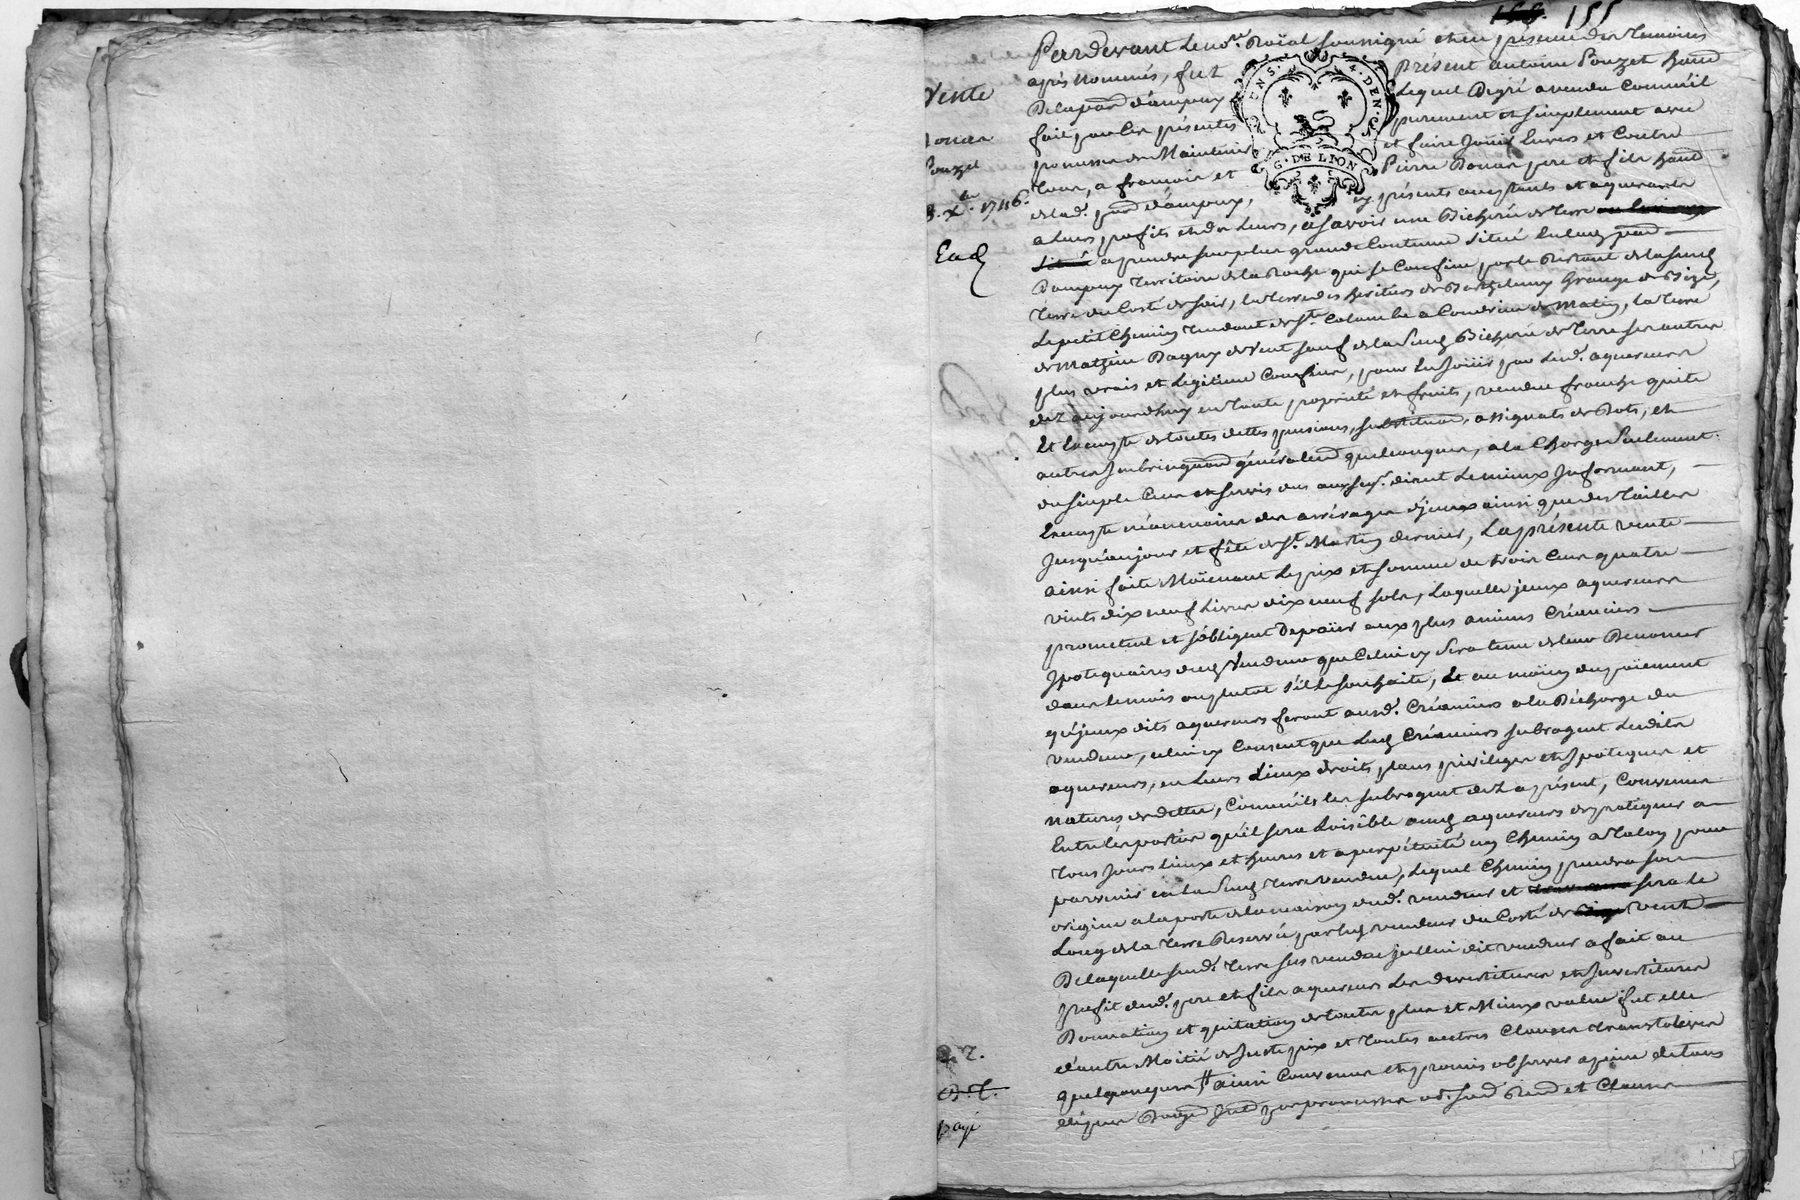 155
Vente
Donan
Pouzet
8. Xbre 1746.
Pardevant le nore. Roïal soussigné et en présence des temoins
après nommés, fut Présent antoine Pouzet habd
De la par. d'ampuy Lequel De gré a vendu Comme il
fait par Ces présentes purement et simplement avec
promesse de Maintenir et faire Jouir Envers et Contre
tous, a francois et Pierre Donan pere et fils habd
de lad. par. d'ampuy, présents acceptants et aquerants
a Leurs profits et des Leurs, a savoir une Bicherée de terre
situé a prendre sur plus grande Contenue situé par
Dampuy territoire de la Roche qui se Confine par le Restant de la susd
terre du Costé de soir, la terre des heritiers de Barthelemy Grange de Bize,
Le petit Chemin tendant de St. Colombe a Condrieu de Matin, la terre
de Mathieu Dagny de Vent sauf de la susd Bicherée de terre ses autres
plus vrais et Legitime Confins, pour En Jouir par Lesd. aquereurs
dez aujourdhuy en toute propriété et fruits, vendue franche quite
Et Exempte de toutes dettes pensions, substitution, assignats de Dots, et
autres generalement quelconques, a la Charge seulement
du simple Cens et servis dus aux sgrs. direct Le mieux Informant,
Exempte néanmoins des arrérages d'jceux ainsi que des tailles
Jusqu'au jour et fête de St. Martin dernier, La présente vente
ainsi faite Moïenant Le prix et somme de trois Cens quatre
vints dix neuf Livres dix neuf sols, Laquelle jceux aquereurs
prometent et s'obligent De païer aux plus anciens Créanciers
Ipotequaires dud Vendeur que Celui cy sera tenu de leur Denomer
dans le mois ou plutot s'il Le souhaite, Et au moïen du païement
qu'jceux dits aquereurs feront ausd. Créanciers a la Décharge du
vendeur, celui cy Consent que Lesd Créanciers subrogent Lesdits
aquereurs, en Leurs Lieux droits, places privileges et ypoteques et
natures de dettes, Comme il les subrogent dez a présent, Convenu
Entre les parties qu'il sera Loisible auxd aquereurs de pratiquer a
tous Jours Lieux et heures et a perpétuité un Chemin a talon pour
parvenir en la susd terre vendue, Lequel Chemin prendra son
origine a la porte de la maison dud. vendeur et sera le
Long de la terre Reservée par led vendeur du Costé de vent
De laquelle susd. terre sus vendue jcellui dit vendeur a fait au
profit desd. pere et fils aquereurs Les devestitures et Investitures
Donnation et quitation de toutes plus et Mieux value fut elle
d'outre Moitié de Juste prix et toutes autres Clauses translatives
quelquonques # ainsi Convenu et promis observer a peine de tous
dépens par promesses
payé